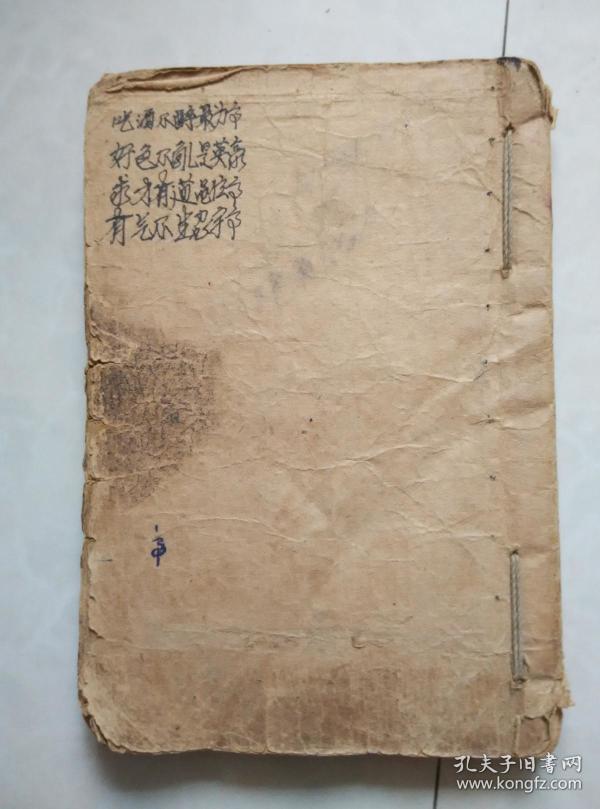 吃酒不醉最为市
好色不乱是英豪
求才有道是位市
有气不生忍字市
市
孔夫子旧书网
www.kongfz.com